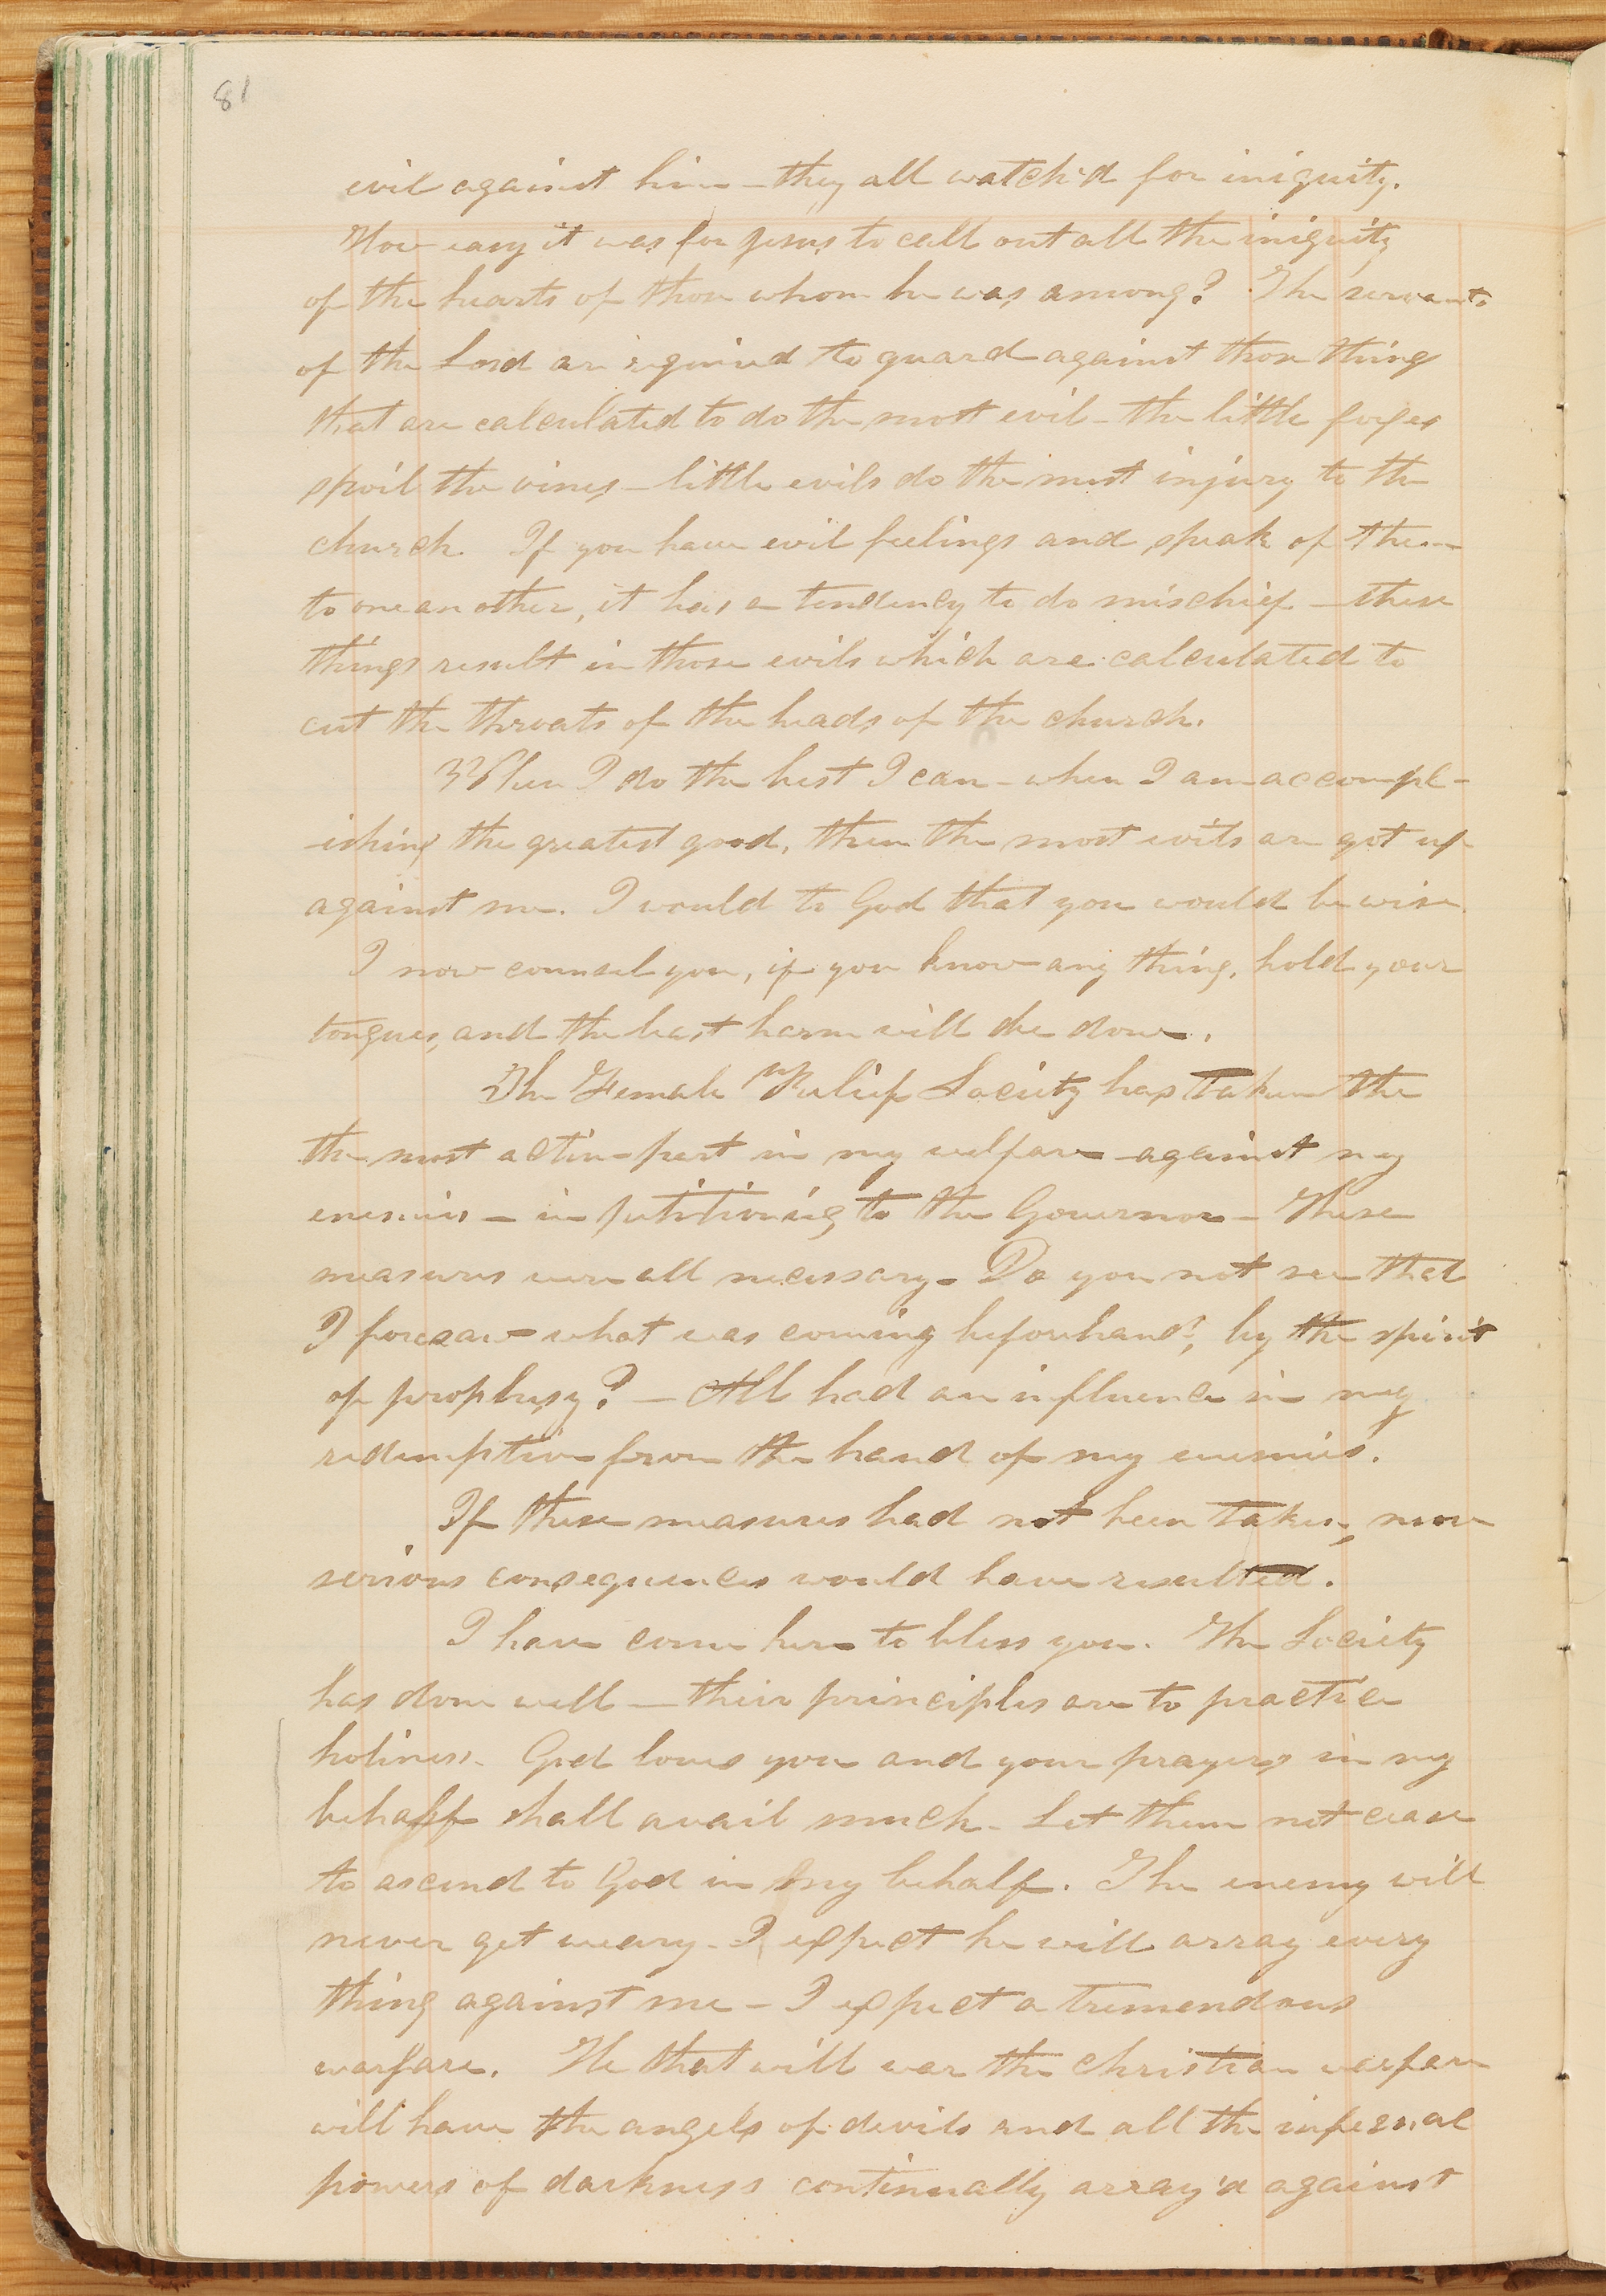 81
evil against him — they all watch'd for iniquity.
How easy it was for Jesus to call out all the iniquity
of the hearts of those whom he was among? The servants
of the Lord are required to guard against those things
that are calculated to do the most evil — the little foxes
spoil the vines — little evils do the most injury to the
church. If you have evil feelings and speak of them
to one another, it has a tendency to do mischief — these
things result in those evils which are calculated to
cut the throats of the heads of the church.
When I do the best I can — when I am accompl-
-ishing the greatest good, then the most evils are got up
against me. I would to God that you would be wise.
I now counsel you, if you know any thing, hold your
tongues, and the least harm will be done.
The Female Relief Society has taken the
the most active part in my welfare — against my
enemies — in petitioning to the Governor — These
measures were all necessary — Do you not see that
I foresaw what was coming beforehand, by the spirit
of prophesy? — All had an influence in my
redemption from the hand of my enemies.
If these measures had not been taken, more
serious consequences would have resulted.
I have come here to bless you. The Society
has done well — their principles are to practice
holiness. God loves you and your prayers in my
behalf shall avail much — Let them not cease
to ascend to God in my behalf. The enemy will
never get weary — I expect he will array every
thing against me — I expect a tremendous
warfare. He that will war the christian warfare
will have the angels of devils and all the infernal
powers of darkness continually array'd against